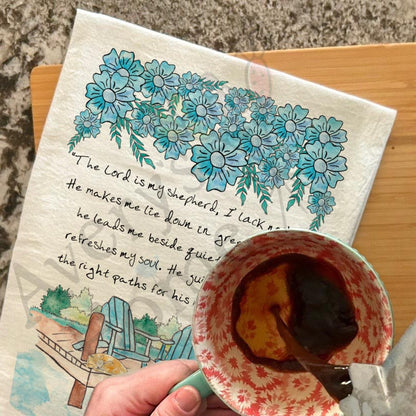 "The Lord is my shepherd, I lack no
He makes me lie down in gre
he leads me beside quie
refreshes my soul. He gui
the right paths for his